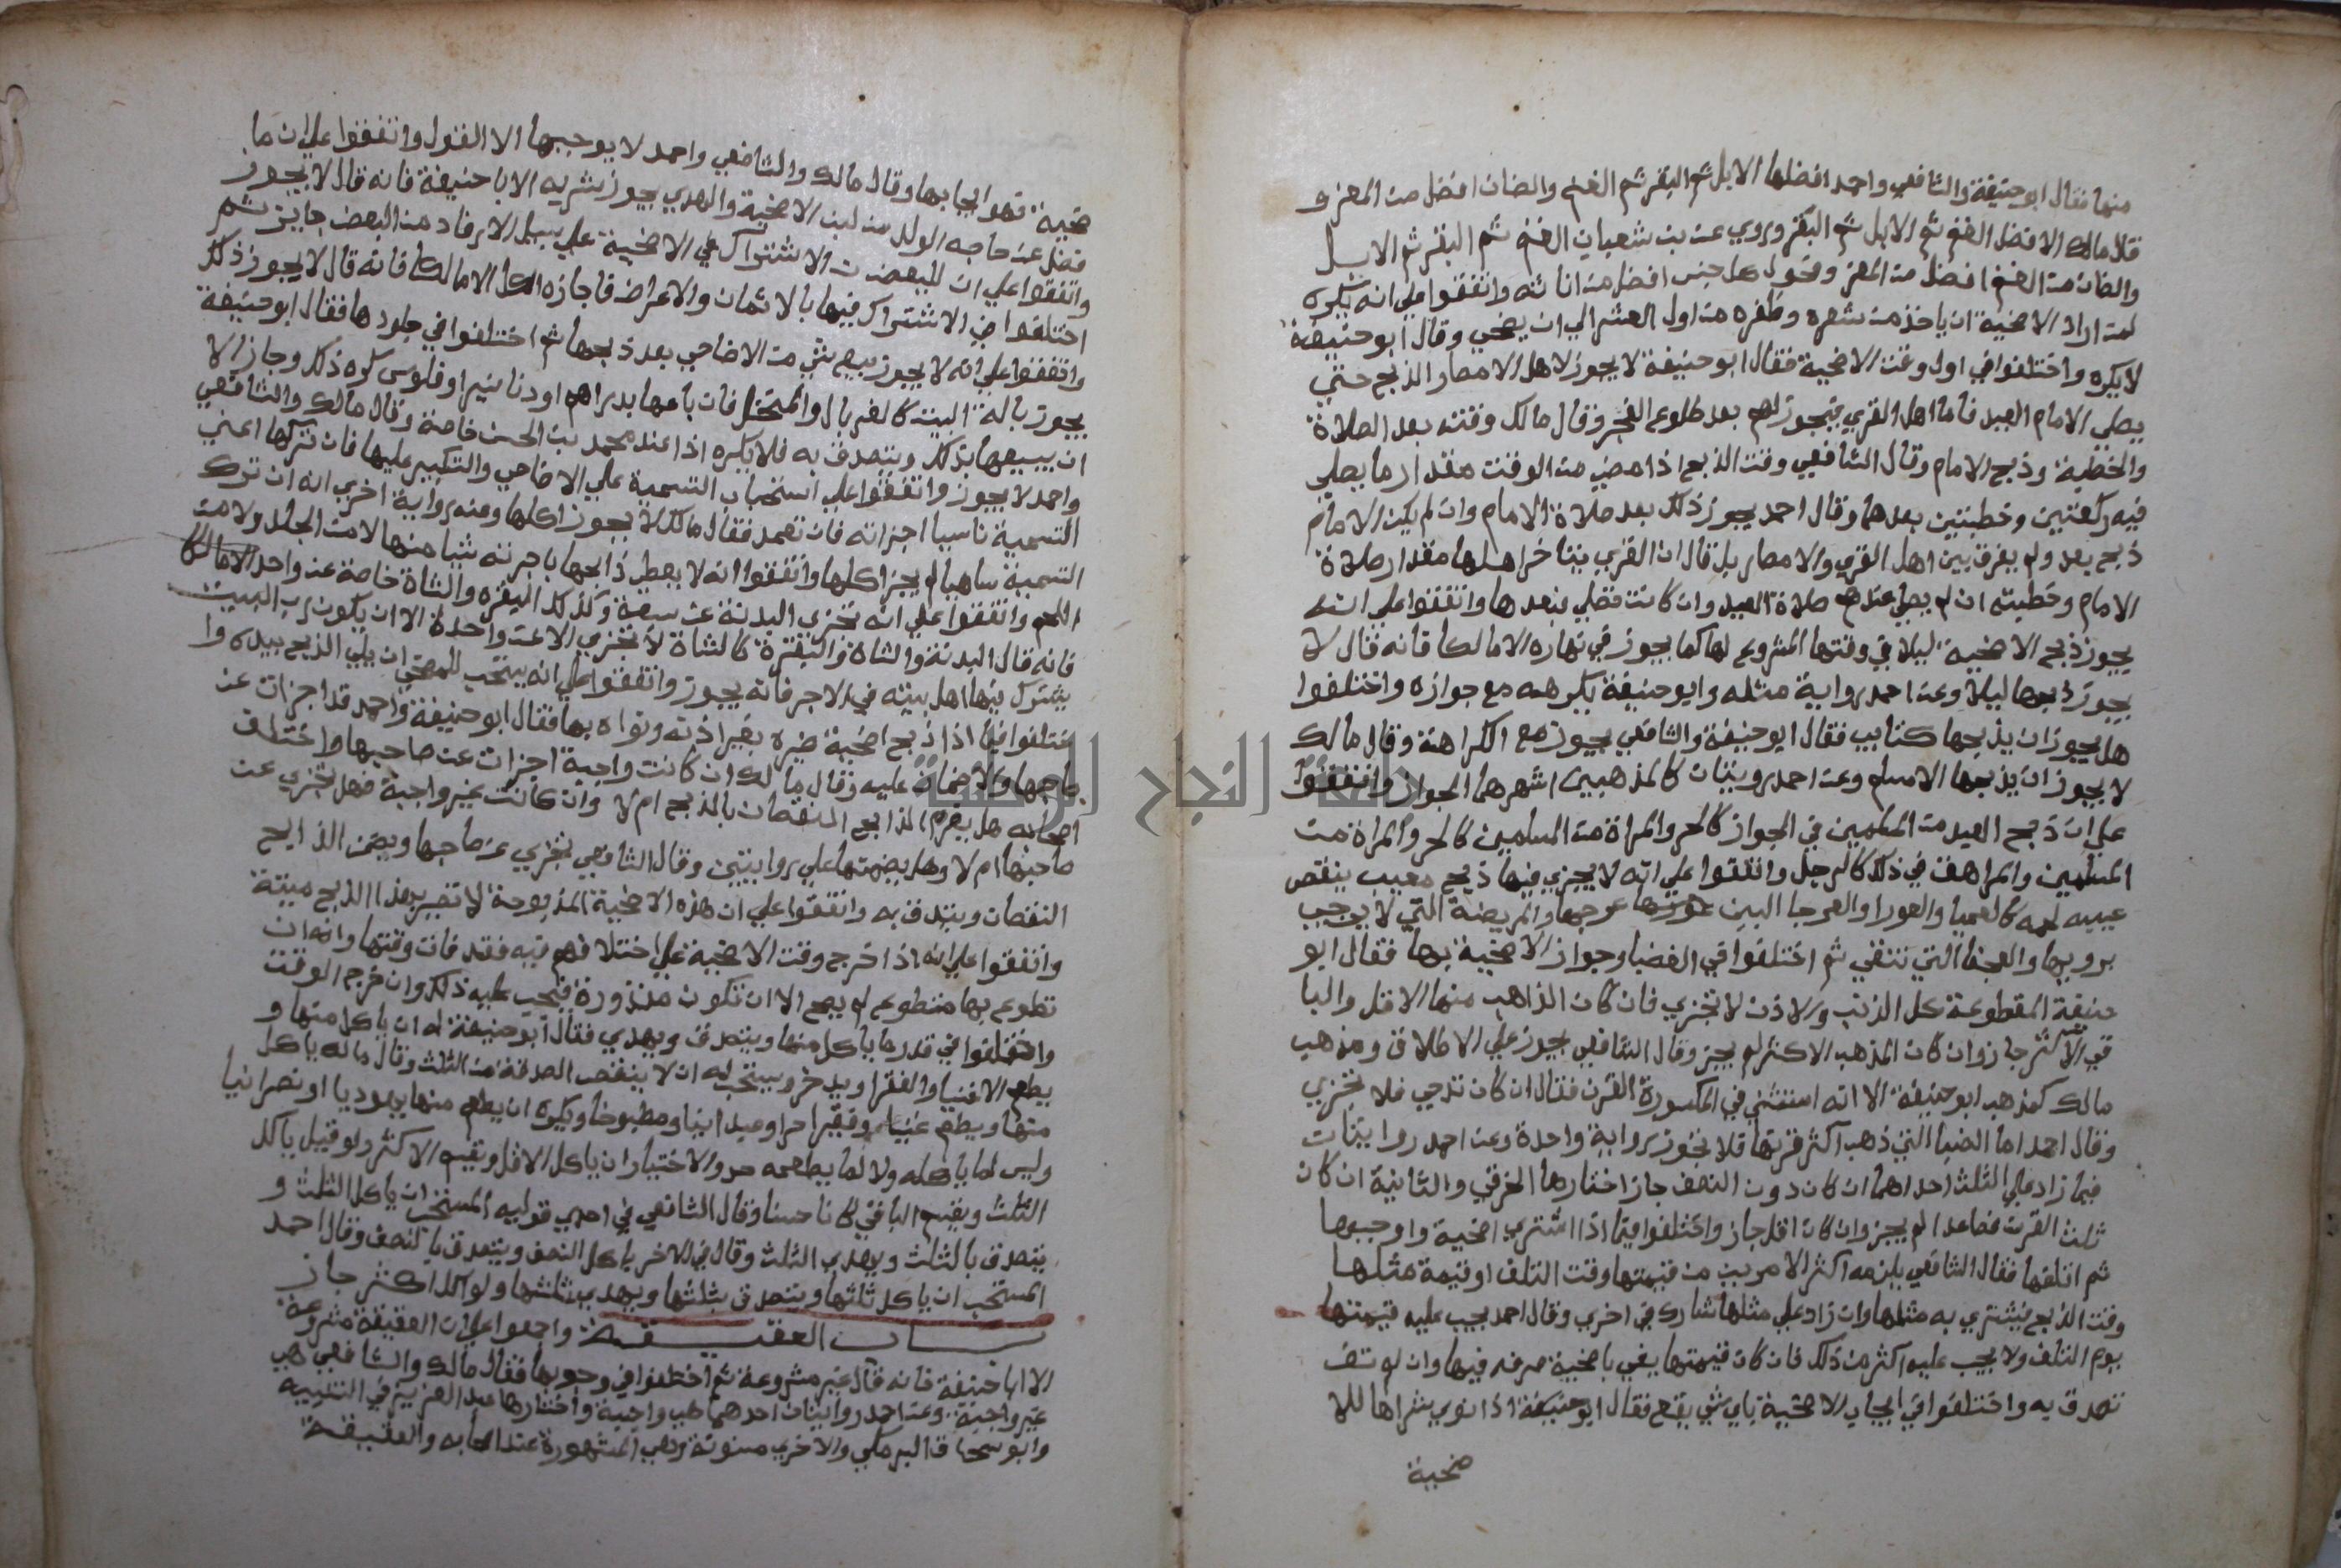 منها فقال ابوحنيفة والشافعي واحمد افضلها الابل ثم البقر ثم الغنم والضان افضل من المعز و
قال مالك الافضل الغنم ثم الابل ثم البقر وروي عن بن شعبان الغنم ثم البقر ثم الابل
والضان من الغنم افضل من المعز وفحول كل جنس افضل من اناثه واتفقوا علي انه يكره
لمن اراد الاضحية ان ياخذ من شعره وظفره من اول العشر الي ان يضحي وقال ابوحنيفة
لا يكره واختلفوا في اول وقت الاضحية فقال ابوحنيفة لا يجوز لاهل الامصار الذبح حتي
يصلي الامام العيد فاما اهل القري فيجوز لهم بعد طلوع الفجر وقال مالك وقته بعد الصلاة
والخطبة وذبح الامام وقال الشافعي وقت الذبح اذا مضي من الوقت مقدار ما يصلي
فيه ركعتين وخطبتين بعدهما وقال احمد يجوز ذلك بعد صلاة الامام وان لم يكن الامام
ذبح بعد ولم يفرق بين اهل القري والامصار بل قال ان القري يتاخر اهلها مقدار صلاة
الامام وخطبته ان لم يصلي عندهم صلاة العيد وان كانت تصلي فبعدها واتفقوا علي انه
يجوز ذبح الاضحية ليلا في وقتها المشروع لها كما يجوز في نهاره الا مالكا فانه قال لا
يجوز ذبحها ليلا وعن احمد رواية مثله وابوحنيفة يكرهه مع جوازه واختلفوا
هل يجوز ان يذبحها كتابي فقال ابوحنيفة والشافعي يجوز مع الكراهة وقال مالك
لا يجوز ان يذبحها الا مسلم وعن احمد روايتان كالمذهبين اشهرهما الجواز واتفقوا
علي ان ذبح العبد من المسلمين في الجواز كالحر والمراة من المسلمين كالحر والمراة من
المسلمين والمراهق في ذلك كالرجل واتفقوا علي انه لا يجزي فيها ذبح معيب ينقص
عيبه لحمه كالعميا والعورا والعرجا البين عرجها والمريضة التي لا يرجي
بروها والعجفا التي لا تنقي ثم اختلفوا في العضبا وجواز الاضحية بها فقال ابو
حنيفة المقطوعة كل الذنب والاذن لا تجزي فان كان الذاهب منها الاقل والباقي
في الاكثر جاز وان كان المذهب الاكثر لم يجز وقال الشافعي يجوز علي الاطلاق ومذهب
مالك كمذهب ابوحنيفة الا انه استثني في المكسورة القرن فقال ان كان تدمي فلا تجزي
وقال احمد اما العضبا التي ذهب اكثر قرنها فلا تجوز رواية واحدة وعن احمد روايتان
فيما زاد علي الثلث احداهما ان كان دون النصف جاز اختارها الخرقي والثانية ان كان
ثلث القرن فصاعدا لم يجز وان كان اقل جاز واختلفوا فيما اذا اشتري اضحية واوجبها
ثم اتلفها فقال الشافعي يلزمه اكثر الامرين من قيمتها وقت التلف او قيمة مثلها
وقت الذبح فيشتري به مثلها وان زاد علي مثلها شارك في اخري وقال احمد يجب عليه قيمتها
يوم التلف ولا يجب عليه اكثر من ذلك فان كان قيمتها يفي باضحية صرفه فيها وان لم تف
تصدق به واختلفوا في ايجاب الاضحية باي شي يقع فقال ابوحنيفة اذا نوي بشراها للا
ضحية
ضحية فهو ايجابها وقال مالك والشافعي واحمد لا يوجبها الا القول واتفقوا علي ان ما
فضل عن حاجة الولد من لبن الاضحية والهدي يجوز شربه الا ابا حنيفة فانه قال لا يجوز
واتفقوا علي ان للبعض الاشتراك في الاضحية علي سبيل الارفاد من البعض جايز ثم
اختلفوا في الاشتراك فيها بالاثمان والاعراض فاجازه الكل الا مالكا فانه قال لا يجوز ذلك
واتفقوا علي انه لا يجوز بيع شي من الاضاحي بعد ذبحها ثم اختلفوا في جلودها فقال ابوحنيفة
يجوز بالة البيت كالغربال والمنخل فان باعها بدراهم او دنانير او فلوس كره ذلك وجاز الا
ان يبيعها بذلك ويتصدق به فلا يكره اذا عند محمد بن الحسن خاصة وقال مالك والشافعي
واحمد لا يجوز واتفقوا علي استحباب التسمية علي الاضاحي والتكبير عليها فان تركها اعني
التسمية ناسيا اجزاته فان تعمد فقال مالك لا يجوز اكلها وعنه رواية اخري انه ان ترك
التسمية ساهيا لم يجز اكلها واتفقوا انه لا يعطي ذابحها باجرته شيا منها لا من الجلد ولا من
اللحم واتفقوا علي انه تجزي البدنة عن سبعة وكذلك البقره والشاة خاصة عن واحد الا مالكا
فانه قال البدنة والشاة والبقرة كالشاة لا تجزي الا عن واحدة الا ان يكون رب البيت
يشترك فيها اهل بيته في الاجر فانه يجوز واتفقوا علي انه يستحب للمضحي ان يلي الذبح بيده وا
ختلفوا فيما اذا ذبح اضحية غيره بغير اذنه ونواه بها فقال ابوحنيفة واحمد قد اجزات عن
صاحبها ولا ضمان عليه وقال مالك ان كانت واجبة اجزات عن صاحبها واختلف
اصحابه هل يغرم الذابح النقصان بالذبح ام لا وان كانت غير واجبة فهل تجزي عن
صاحبها ام لا وهل يضمنها علي روايتين وقال الشافعي تجزي عن صاحبها ويضمن الذابح
النقصان ويتصدق به واتفقوا علي ان هذه الاضحية المذبوحة لا تصير بهذا الذبح ميتة
واتفقوا علي انه اذا خرج وقت الاضحية علي اختلافهم فيه فقد فات وقتها وانه ان
تطوع بها متطوع لم يصح الا ان تكون منذورة فيجب عليه ذلك وان خرج الوقت
واختلفوا في قدر ما ياكل منها ويتصدق ويهدي فقال ابوحنيفة له ان ياكل منها و
يطعم الاغنيا والفقرا ويدخر ويستحب له ان لا ينقص الصدقة من الثلث وقال مالك ياكل
منها ويطعم غنيا وفقيرا حرا وعبدا نيا ومطبوخا ويكره ان يطعم منها يهوديا او نصرانيا
وليس لما ياكله ولا لما يطعمه حد والاختيار ان ياكل الاقل ويقسم الاكثر ولو قيل ياكل
الثلث ويقسم الباقي كان حسنا وقال الشافعي في احدي قوليه المستحب ان ياكل الثلث و
يتصدق بالثلث ويهدي الثلث وقال في الاخر ياكل النصف ويتصدق بالنصف وقال احمد
المستحب ان ياكل ثلثها ويتصدق بثلثها ويهدي ثلثها ولو اكل اكثر جاز
باب العقيقة واجمعوا علي ان العقيقة مشروعة
الا ابا حنيفة فانه قال غير مشروعة ثم اختلفوا في وجوبها فقال مالك والشافعي هي
غير واجبة وعن احمد روايتان احدهما هي واجبة واختارها عبد العزيز في التنبيه
وابو سحاق البرمكي والاخري مسنونة وهي المشهورة عند اصحابه والعقيقة
جامعة النجاح الوطنية